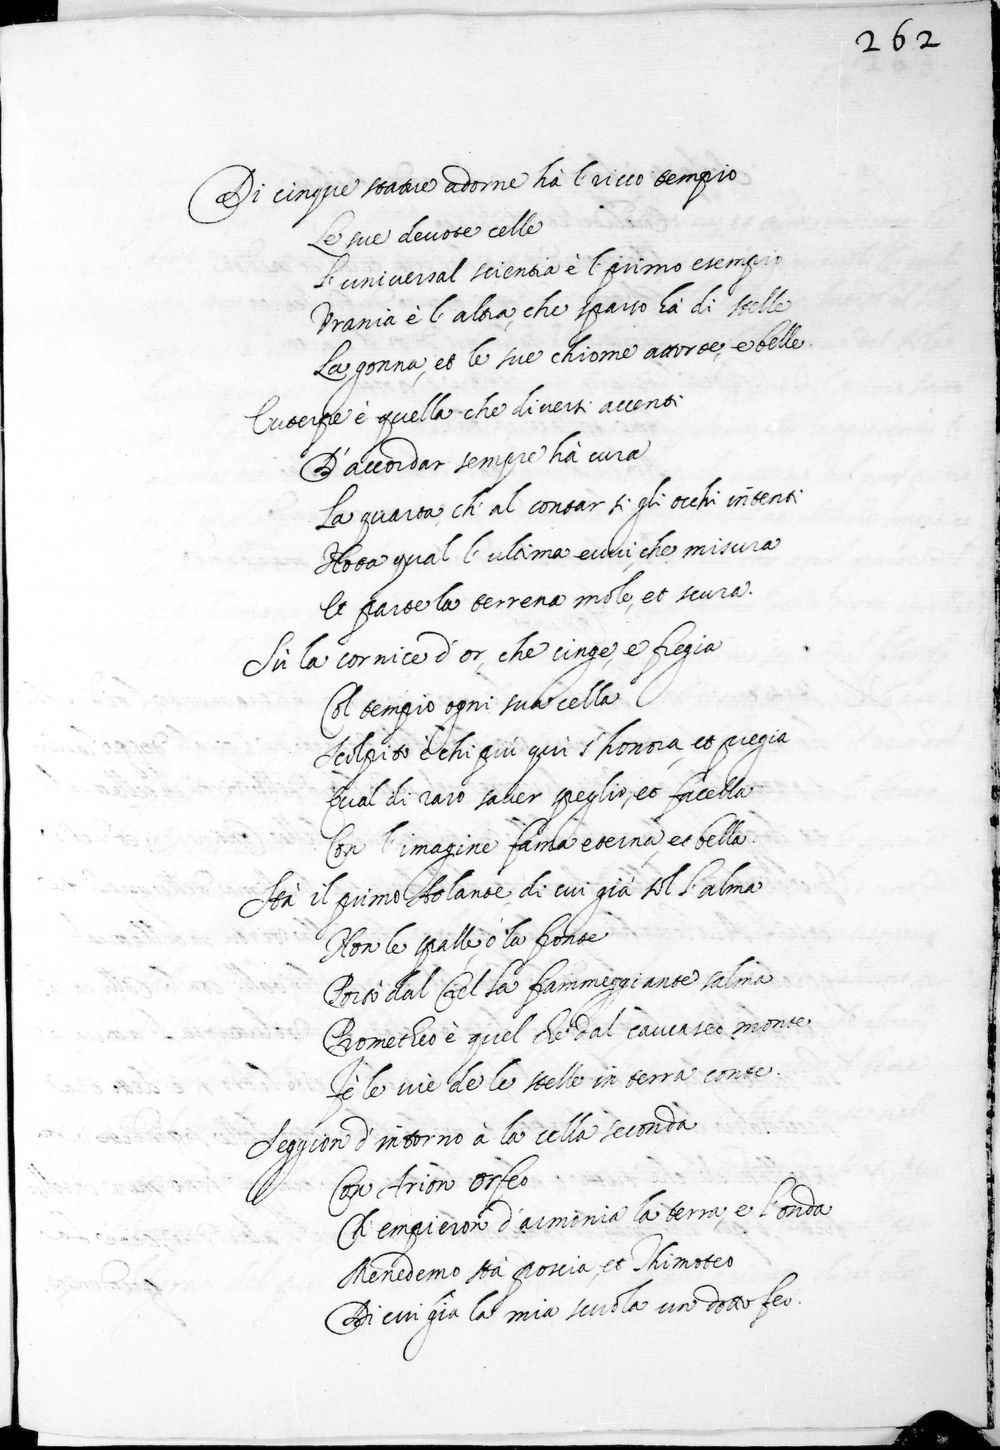 262
Di cinque statue adorne hà l'ricco tempio
Le sue deuote celle
L'uniuersal scientia è l'primo esempio
Vrania è l'altra, che sparso hà di stelle
La gonna, et le sue chiome attorte, e belle.
Euterpe è quella che diuersi accenti
D'accordar sempre hà cura
La quarta, ch'al contar ti gli occhi intenti
Nota qual l'ultima euui, che misura
Et parte la terrena mole, et scura.
Sù la cornice d'or, che cinge, e fregia
Col tempio ogni sua cella
Scolpito è chi più qui s'honora, et pregia
Qual di raro sauer speglio, et facella
Con l'imagine fama eterna, et bella.
Stà il primo Atlante, di cui già sol l'alma
Non le spalle, ò la fronte
Portò dal Ciel la fiammeggiante salma
Prometheo è quel che dal caucaseo monte
Fè le uie de le stelle in terra conte.
Seggion d'intorno à la cella seconda
Con Arion Orfeo
Ch'empieron d'armonia la terra, e l'onda
Menedemo stà poscia, et Thimoteo
Di cui già la mia scuola un dotto feo.